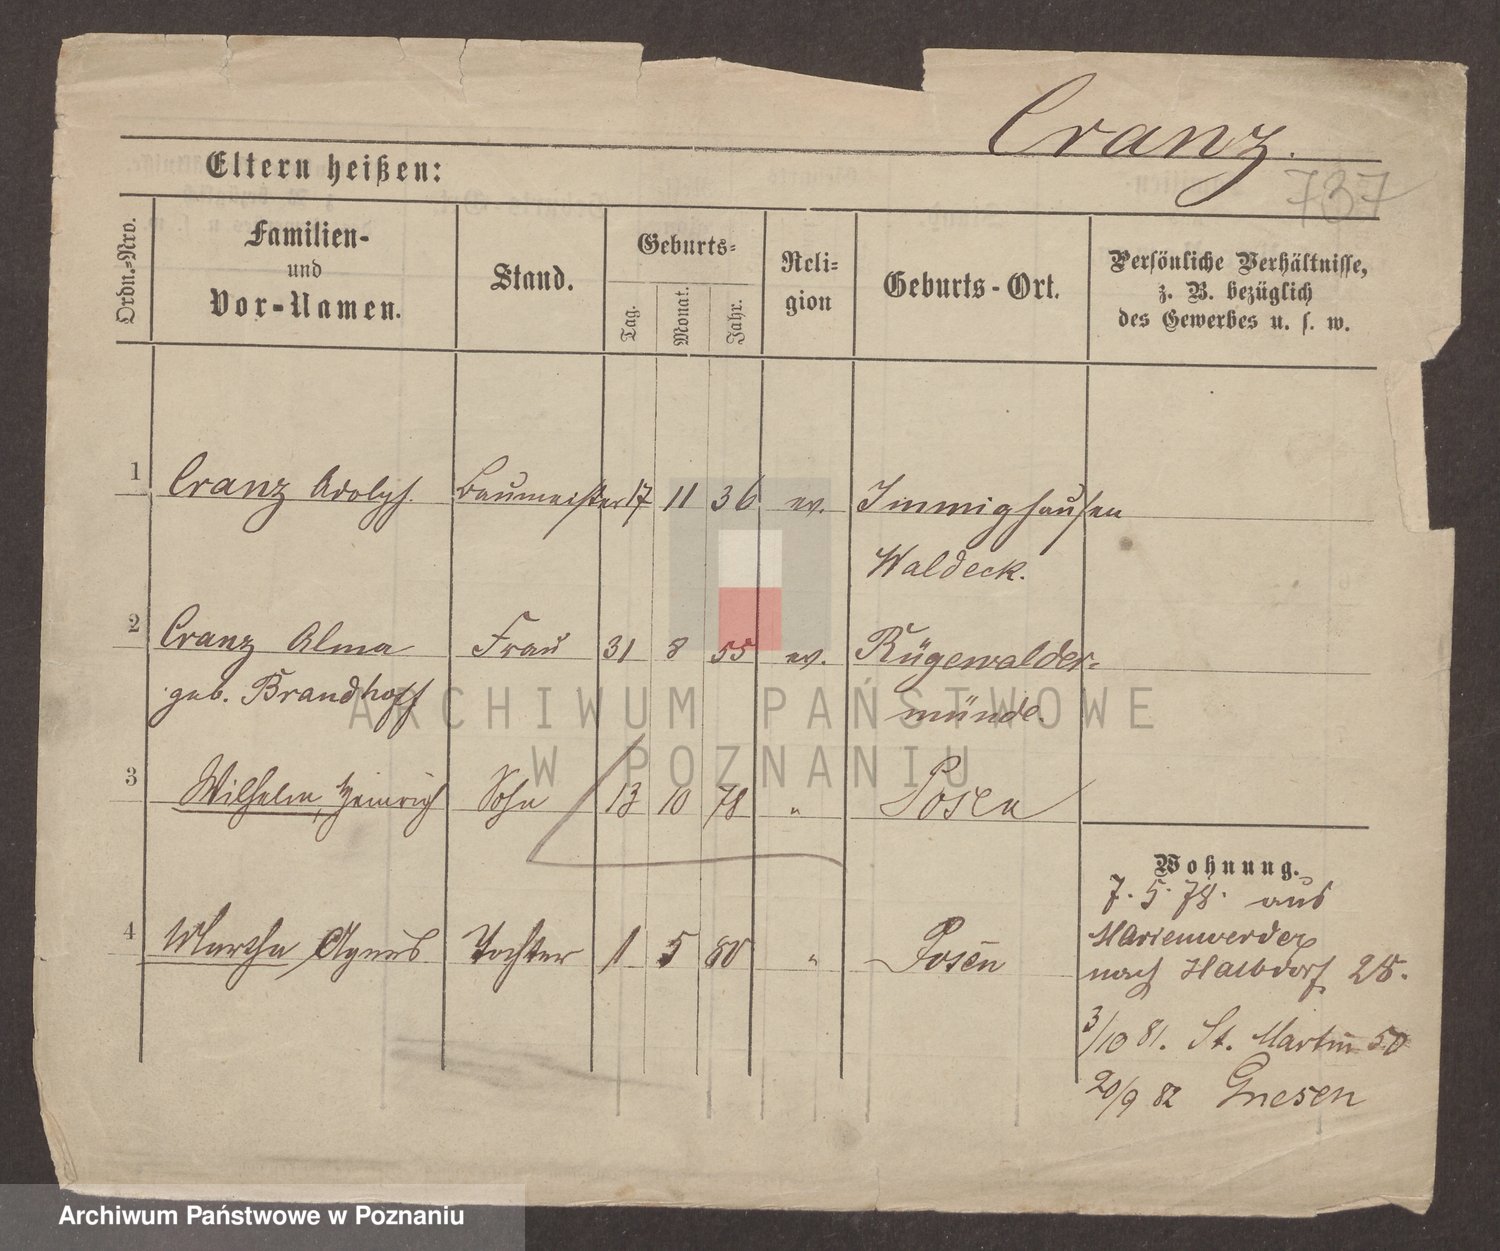 Cranz.
737
Eltern heißen:
Ordn.=Nro.
Familien-
und
Vor-Namen.
Stand.
Geburts=
Tag.
Monat.
Jahr.
Reli=
gion
Geburts-Ort.
Persönliche Verhältnisse,
z. B. bezüglich
des Gewerbes u. s. w.
1 Cranz Adolph. Baumeister 17 11 36 ev. Immighausen
Waldeck.
2 Cranz Alma Frau 31 8 55 ev. Rügewalder-
geb. Brandhoff münde.
3 Wilhelm, Heinrich Sohn 13 10 78 " Posen
4 Martha, Agnes Tochter 1 5 80 " Posen
Wohnung.
7. 5. 78. aus
Marienwerder
nach Halbdorf 28.
3/10 81. St. Martin 50
20/9 82 Gnesen
ARCHIWUM PAŃSTWOWE
W POZNANIU
Archiwum Państwowe w Poznaniu